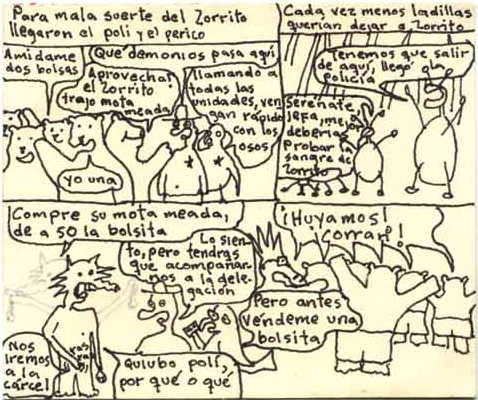 Para mala suerte del Zorrito
llegaron el poli y el perico
Amí dame
dos bolsas
Qué demonios pasa aquí
Aprovecha!
el Zorrito
trajo mota
meada
llamando a
todas las
unidades, ven
gan rápido
con los
osos
yo una
Cada vez menos ladillas
querían dejar a Zorrito
Tenemos que salir
de aquí, llegó la
policía
Serénate,
jefa, mejor
debería
Probar la
sangre de
Zorrito
Compre su mota meada,
de a 50 la bolsita
Lo sien-
to, pero tendrás
que acompañar-
nos a la dele-
gación
Nos
iremos
a la
cárcel
Quiubo poli,
por qué o qué
¡Huyamos!
¡Corran!
Pero antes
véndeme una
bolsita